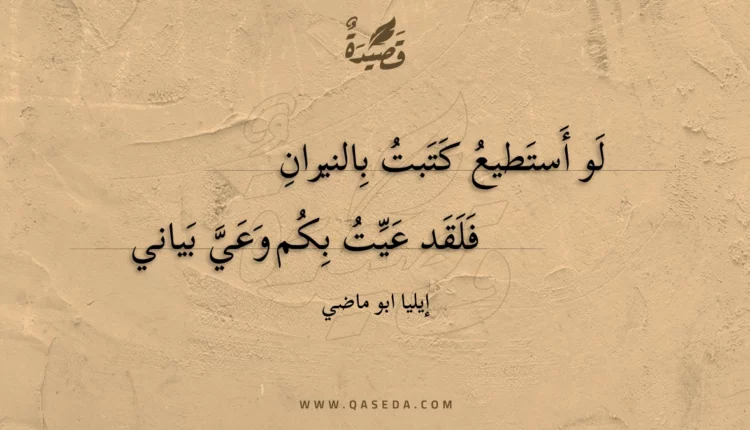 قَصِيْدَةٌ
لَو أَستَطيعُ كَتَبتُ بِالنيرانِ
فَلَقَد عَيِّتُ بِكُم وَعَيَّ بَياني
إيليا ابو ماضي
WWW.QASEDA.COM